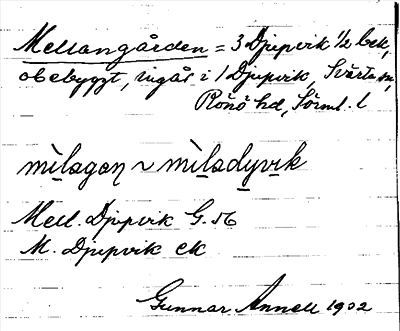 Mellangården = 3 Djupvik 1/2 bek,
obebyggt, ingår i 1 Djupvik, Svärta sn,
Rönö hd, Sörml. l
mìlagọn ~ mìlsdyvik
Mell. Djupvik G. 56
M. Djupvik ek
Gunnar Annell 1902